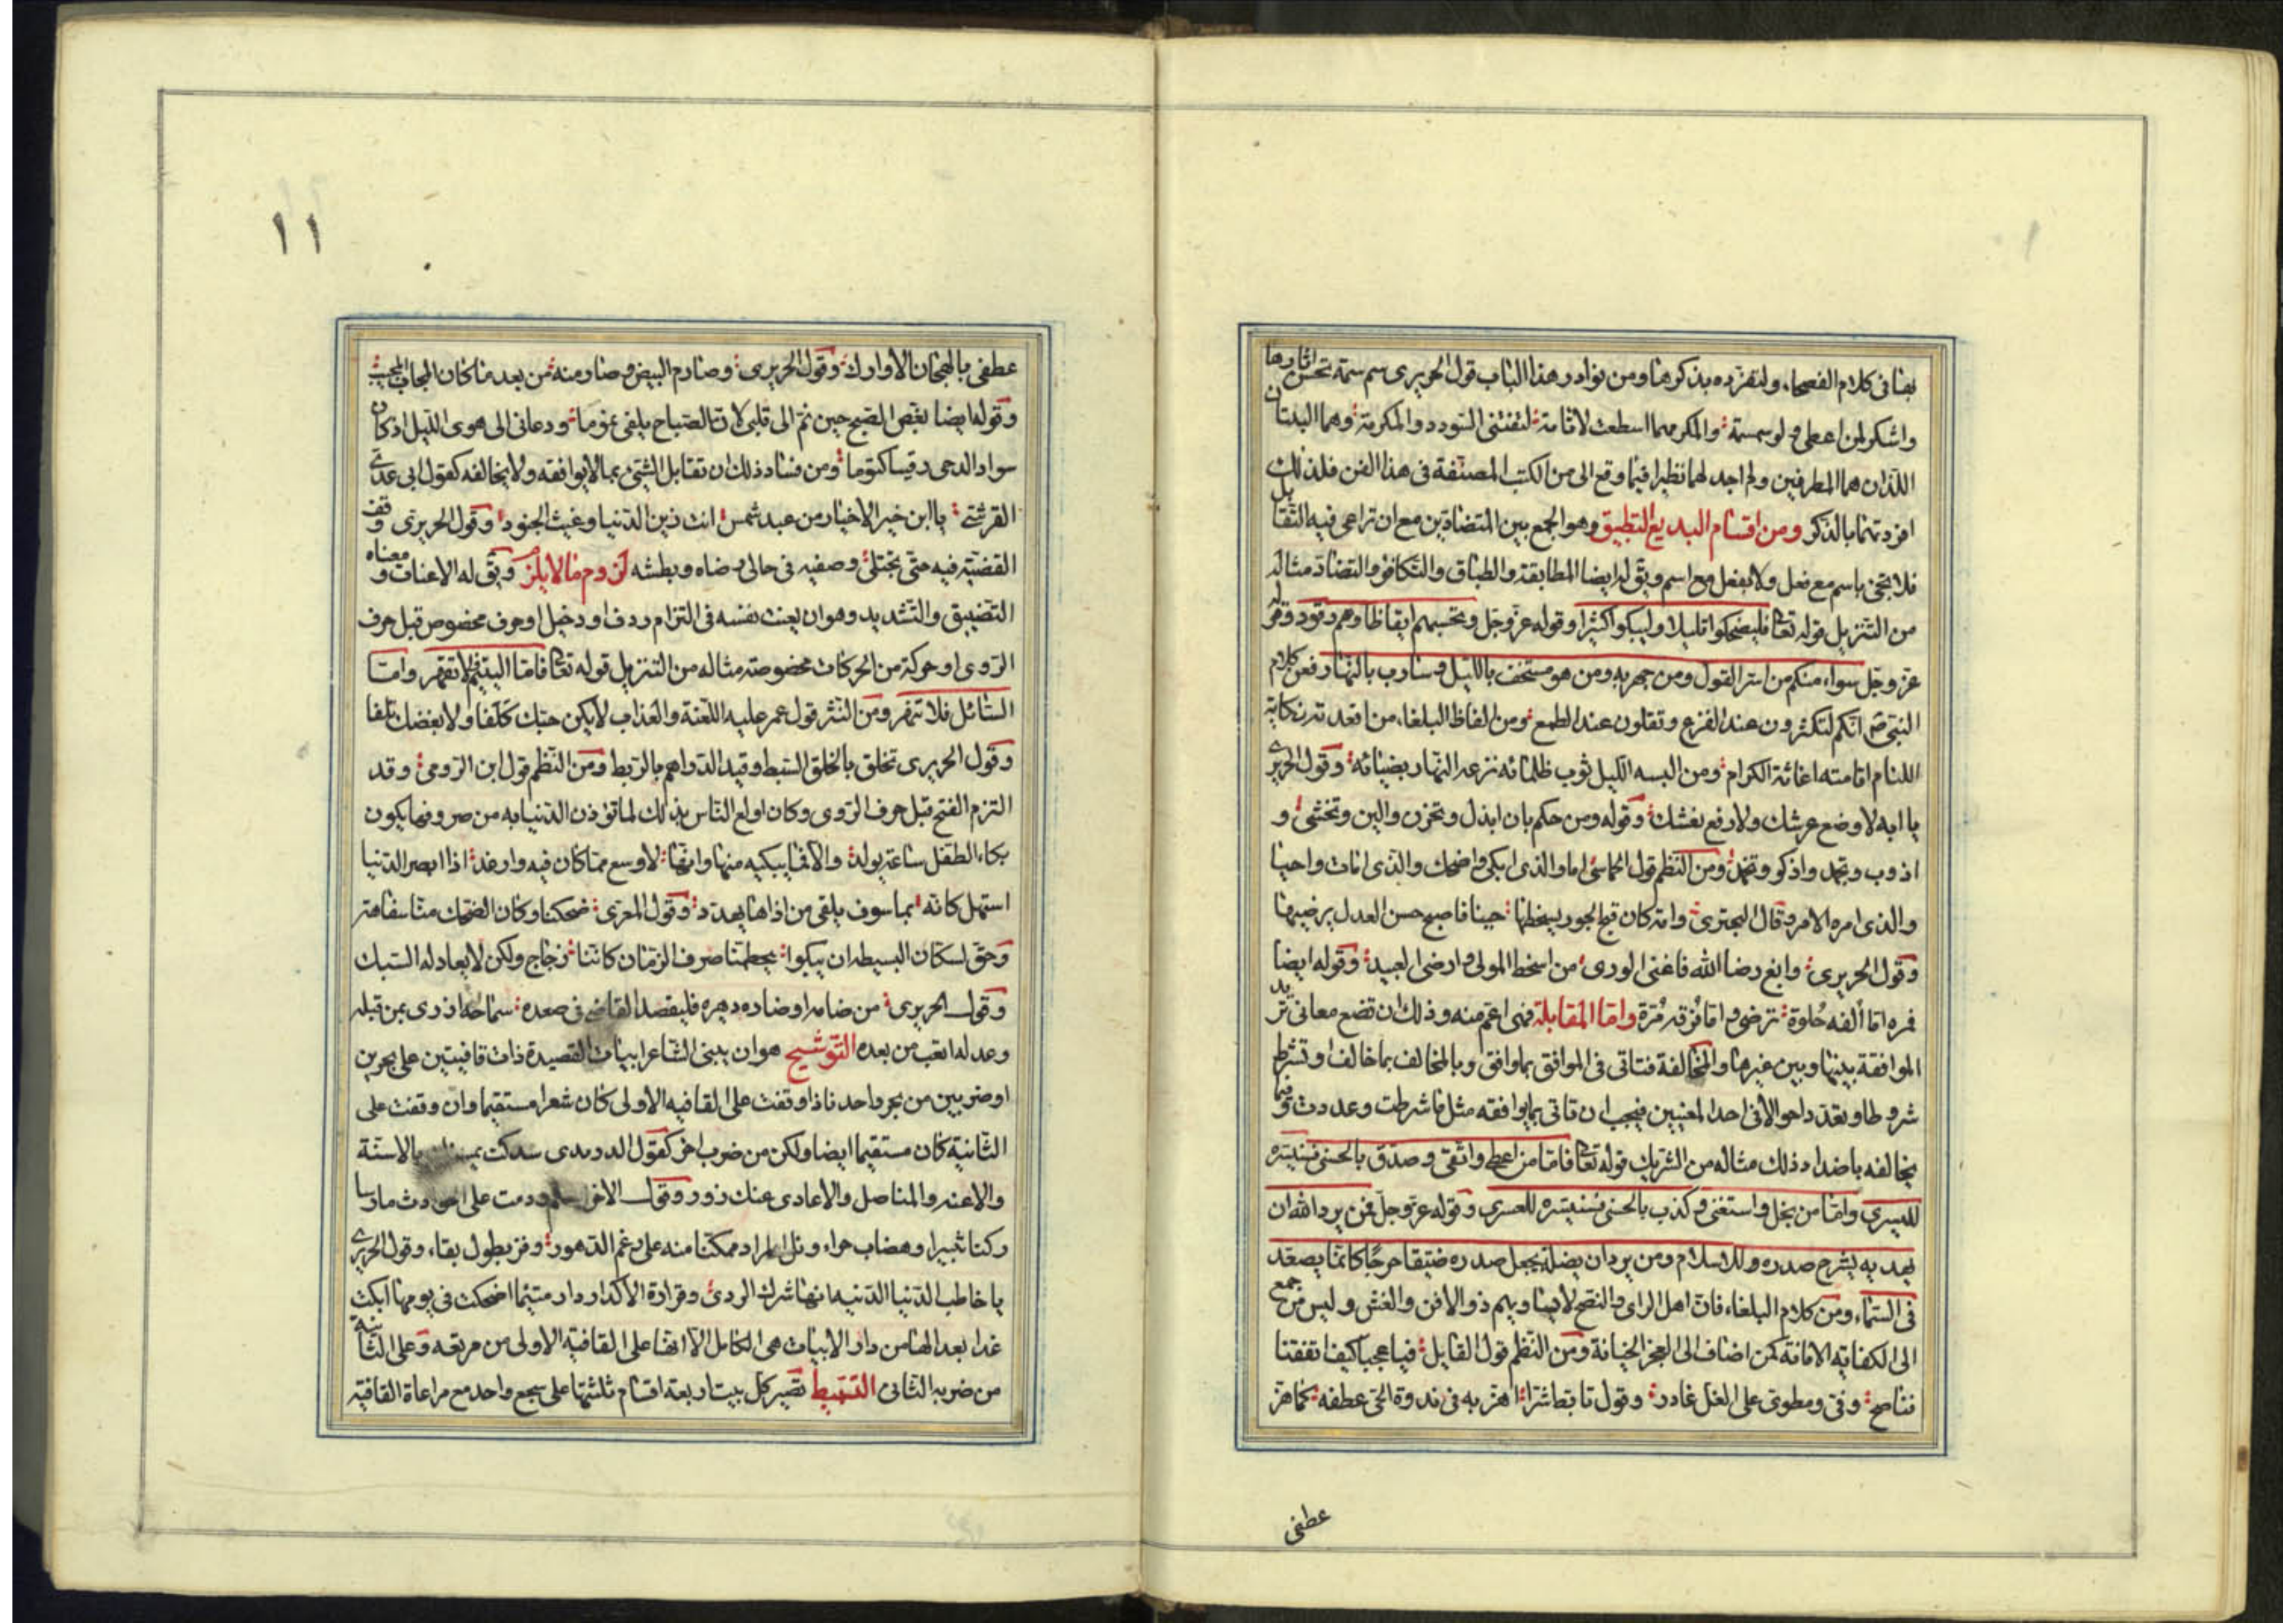 بهنا فى كلام الفصحاء ولنفرده بذكرها ومن نوادر هذا الباب قول الحريرى سم سمة تحسن اثارها
واشكر لمن اعطى ولو سمسمة والمكر مهما اسطعت لا تاته لتقتنى السودد والمكرمة وهما البيتان
اللذان هما المطرفين ولم اجد لهما نظيرا فيما وقع الى من الكتب المصنفة فى هذا الفن فلذلك
افردتهما بالذكر ومن اقسام البديع التطبيق وهو الجمع بين المتضادين مع ان تراعى فيه التقابل
فلا تجئ باسم مع فعل ولا بفعل مع اسم ويق له ايضا المطابقة والطباق والتكافؤ والتضاد مثاله
من التنزيل قوله تعا فليضحكوا قليلا وليبكوا كثيرا وقوله عز وجل وتحسبهم ايقاظا وهم رقود وقوله
عز وجل سواء منكم من اسر القول ومن جهر به ومن هو مستخف بالليل وسارب بالنهار فمن كلام
النبى ص انكم لتكثرون عند الفزع وتقلون عند الطمع ومن الفاظ البلغاء من اقعدته نكاية
اللئام اقامته اغاثة الكرام ومن البسه الليل ثوب ظلمائه نزعه النهار بضيائه وقول الحريرى
يا ابه لا وضع عرشك ولا رفع نعشك وقوله ومن حكم بان ابذل وتخزن والين وتخشن و
اذوب وتجمد واذكو وتخمد ومن النظم قول الحماسى اما والذى ابكى واضحك والذى امات واحيا
والذى امره الامر وقال البحترى وامة كان قبح الجور يسخطها حينا فاصبح حسن العدل يرضيها
وقول الحريرى وابغ رضا الله فاغنى الورى من اسخط المولى وارضى العبيد وقوله ايضا
فمره اما ألفه حلوة ترضى واما فرقه مرة واما المقابلة فهى اعم منه وذلك ان تضع معانى تريد
الموافقة بينها وبين غيرها والمخالفة فتاتى فى الموافق بما وافق وبالمخالف بما خالف او تشرط
شروطا وتعد داحوالا فى احد المعنيين فيجب ان تاتى بما يوافقه مثل ما شرطت وعددت وفيما
يخالفه باضداد ذلك مثاله من التنزيل قوله تعا فاما من اعطى واتقى وصدق بالحسنى فسنيسره
لليسرى واما من بخل واستغنى وكذب بالحسنى فسنيسره للعسرى وقوله عز وجل فمن يرد الله ان
يهديه يشرح صدره للاسلام ومن يرد ان يضله يجعل صدره ضيقا حرجا كانما يصعد
فى السماء ومن كلام البلغاء فان اهل الراى والنصح لا يساويهم ذو الافن والغش وليس من جمع
الى الكفاية الامانة كمن اضاف الى العجز الخيانة ومن النظم قول القايل فيا عجبا كيف اتفقنا
فناصح وفى ومطوى على الغل غادر وقول تابط شرا اهز به فى ندوة الحى عطفه كما هز
عطفى
١١
عطفى بالهجان الاوارك وقول الحريرى وصارم البيض وصارمنه من بعد ما كان المجاب المجيب
وقوله ايضا بغض الصبح حين نم الى قلبى لان الصباح يلفى نموما ودعانى الى هوى الليل اذ كان
سواد الدجى رقيبا كتوما ومن فساد ذلك ان تقابل الشئ بما لا يوافقه ولا يخالفه كقول ابى عدى
القرشى يا ابن خير الاخيار من عبد شمس انت زين الدنيا وغيث الجنود وقول الحريرى وقف
القضية فيه حتى تجتلى وصفيه فى حالى رضاه وبطشه لزوم ما لا يلزم ويق له الاعنات ومعناه
التضييق والتشديد وهو ان يعنت نفسه فى التزام ردف او دخيل او حرف مخصوص قبل حرف
الروى او حركة من الحركات مخصوصة مثاله من التنزيل قوله تعا فاما اليتيم فلا تقهر واما
السائل فلا تنهر ومن النثر قول عمر عليه اللعنة والعذاب لا يكن حبك كلفا ولا بغضك تلفا
وقول الحريرى تخلق بالخلق السبط وقيد الدراهم بالربط ومن النظم قول ابن الرومى وقد
التزم الفتح قبل حرف الروى وكان اولع الناس بذلك لما تؤذن الدنيا به من صروفها يكون
بكاء الطفل ساعة يولد والا فما يبكيه منها وانها لاوسع مما كان فيه وارغد اذا ابصر الدنيا
استهل كانه بما سوف يلقى من اذاها يهدد وقول المعرى ضحكنا وكان الضحك منا سفاهة
وحق لسكان البسيطه ان يبكوا يحطمنا صرف الزمان كاننا زجاج ولكن لا يعاد له السبك
وقول الحريرى من ضامه او ضاره دهره فليقصد القاضى فى صعده سماحه ازرى بمن قبله
وعدله اتعب من بعده التوشيح هو ان يبنى الشاعر ابيات القصيدة ذات قافيتين على بحرين
او ضربين من بحر واحد فاذا وقفت على القافيه الاولى كان شعرا مستقيما وان وقفت على
الثانية كان مستقيما ايضا ولكن من ضرب اخر كقول الدريدى سدكت بالاسنة
والاعنه والمناصل والاعادى عنك زور وقول الاخر اسلم ودمت على الحوادث ما رسا
ركنا ثبير او هضاب حراء ونل المراد ممكنا منه على رغم الدهور وفز بطول بقاء وقول الحريرى
يا خاطب الدنيا الدنيه انها شرك الردى وقرارة الاكدار دار متى ما اضحكت فى يومها ابكت
غدا بعدا لها من دار الابيات هى الكامل الا انها على القافية الاولى من مربعه وعلى الثانية
من ضربه الثانى التسميط تصير كل بيت اربعة اقسام ثلثتها على سجع واحد مع مراعاة القافية